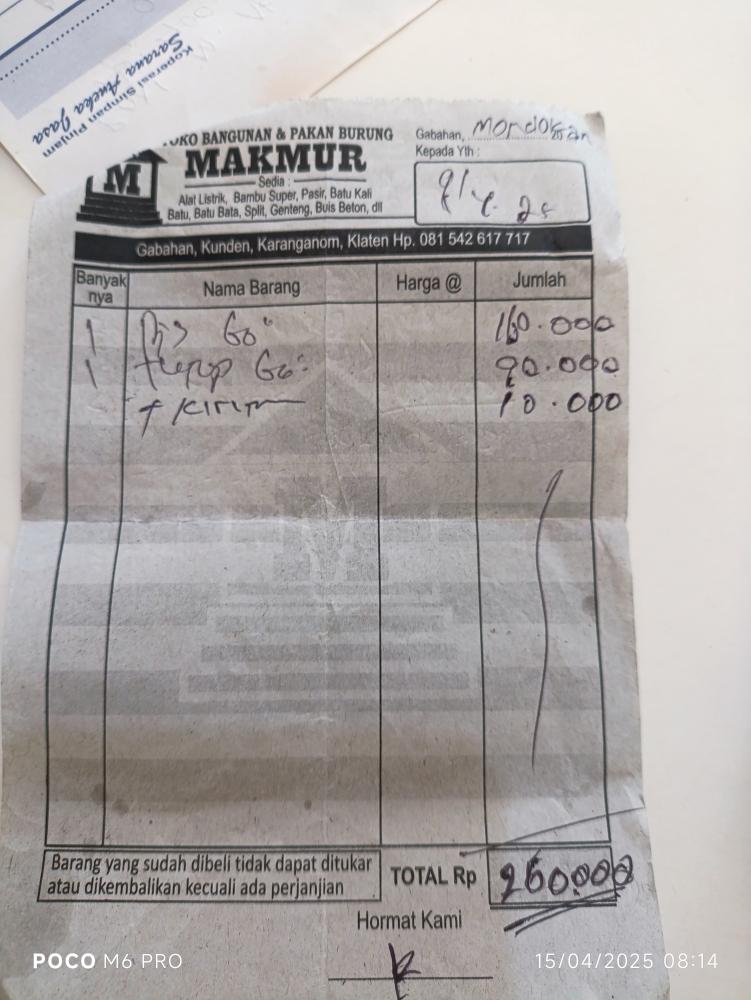 Koperasi Simpan Pinjam
Sarana Aneka Jasa
TOKO BANGUNAN & PAKAN BURUNG
M
MAKMUR
Sedia :
Alat Listrik, Bambu Super, Pasir, Batu Kali
Batu, Batu Bata, Split, Genteng, Buis Beton, dll
Gabahan, Mondokan 20
Kepada Yth :
Gabahan, Kunden, Karanganom, Klaten Hp. 081 542 617 717
Banyak nya Nama Barang Harga @ Jumlah
1 Bis 60" 160.000
1 tutup 60" 90.000
+ kirim 10.000
Barang yang sudah dibeli tidak dapat ditukar
atau dikembalikan kecuali ada perjanjian
TOTAL Rp 260000
Hormat Kami
POCO M6 PRO
15/04/2025 08:14